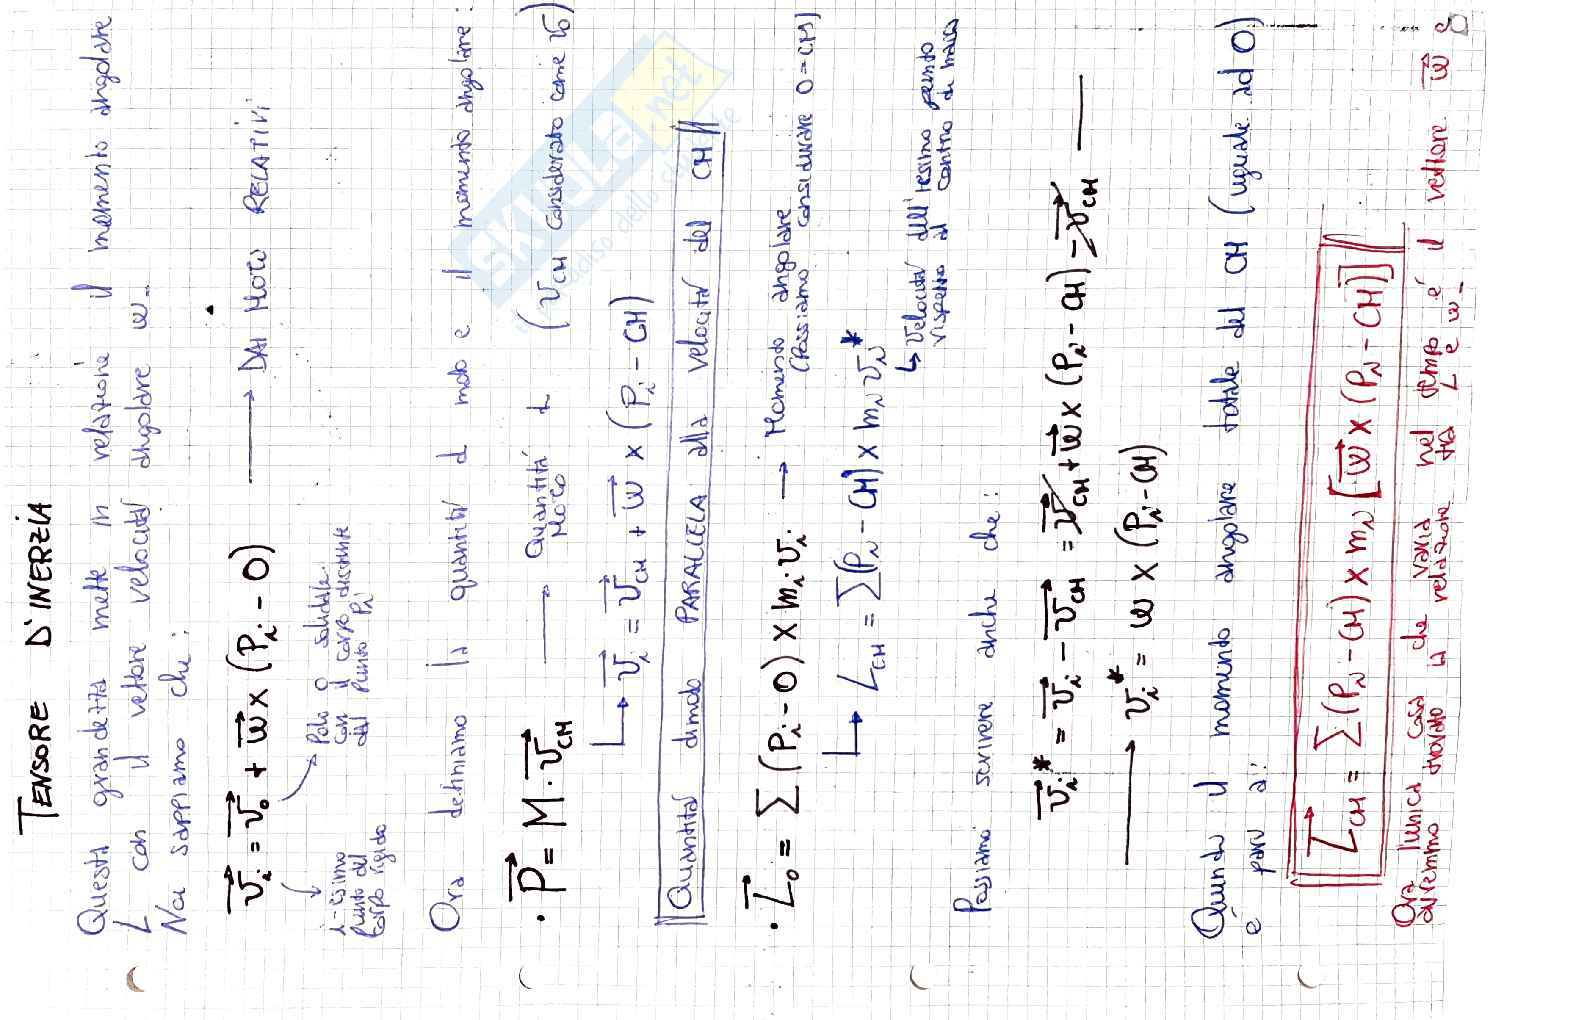 TENSORE D'INERZIA
Questa grandezza mette in relazione il momento angolare
L con il vettore velocità angolare w.
Noi sappiamo che:
v⃗ᵢ = v⃗₀ + w⃗ × (Pᵢ - O) → DAI MOTO RELATIVI
i-esimo punto del corpo rigido
Polo O solidale con il corpo distante dal punto Pᵢ
Ora definiamo la quantità d moto e il momento angolare:
· P⃗ = M · v⃗CM → Quantità d Moto (vCM considerato come v₀)
↳ v⃗ᵢ = v⃗CM + w⃗ × (Pᵢ - CM)
Quantità dimoto PARALLELA alla velocità del CM
· L⃗₀ = Σ (Pᵢ - O) × mᵢ · vᵢ → Momento angolare (Possiamo considerare O=CM)
↳ LCM = Σ(Pᵢ - CM) × mᵢ vᵢ*
↳ Velocità dell'iesimo punto rispetto al centro di massa
Possiamo scrivere anche che:
v⃗ᵢ* = v⃗ᵢ - v⃗CM = v⃗CM + w⃗ × (Pᵢ - CM) - v⃗CM
→ v⃗ᵢ* = w × (Pᵢ - CM)
Quindi il momento angolare totale del CM (uguale ad O)
è pari a:
L⃗CM = Σ (Pᵢ - CM) × mᵢ [w⃗ × (Pᵢ - CM)]
Ora l'unica cosa che varia nel tempo è il vettore w⃗ e
avremmo trovato la relazione tra L e w.
SKUOLA.net